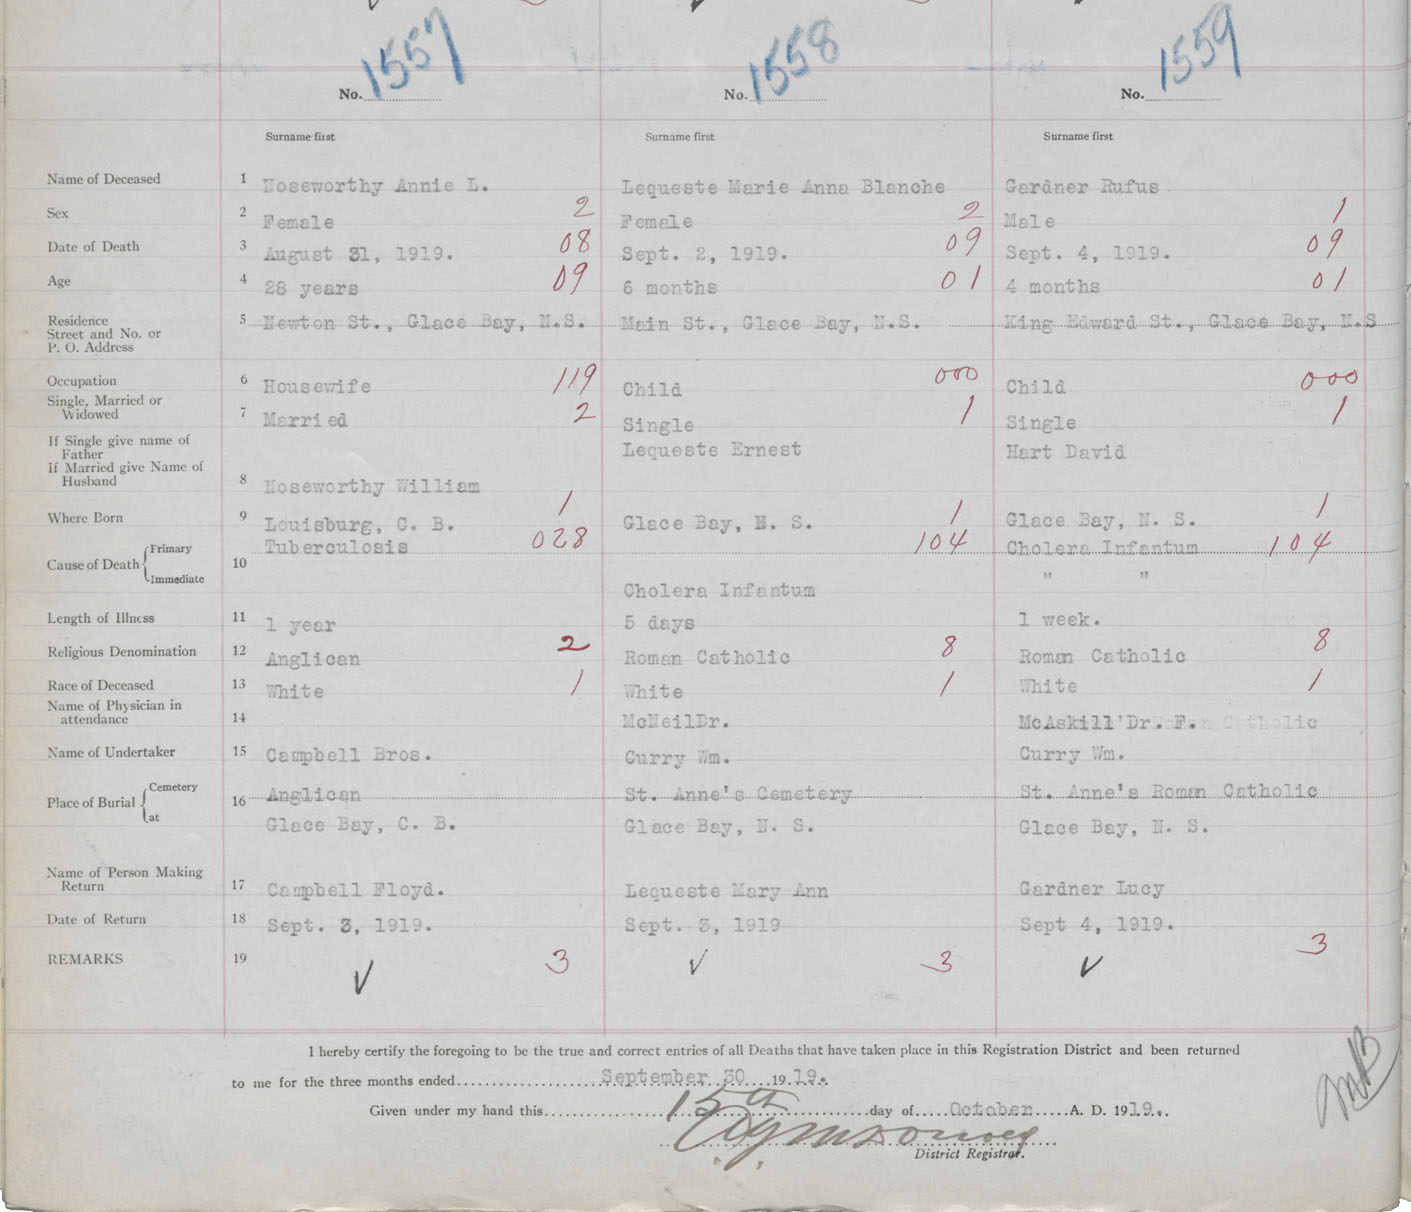 1557 1558 1559
No. No. No.
Surname first Surname first Surname first
Name of Deceased 1 Noseworthy Annie L. Lequeste Marie Anna Blanche Gardner Rufus
Sex 2 Female 2 Female 2 Male 1
Date of Death 3 August 31, 1919. 08 Sept. 2, 1919. 09 Sept. 4, 1919. 09
Age 4 28 years 09 6 months 01 4 months 01
Residence 5 Newton St., Glace Bay, N.S. Main St., Glace Bay, N.S. King Edward St., Glace Bay, N.S
Street and No. or
P. O. Address
Occupation 6 Housewife 119 Child 000 Child 000
Single, Married or
Widowed 7 Married 2 Single 1 Single 1
If Single give name of
Father Lequeste Ernest Hart David
If Married give Name of
Husband 8 Noseworthy William
Where Born 9 Louisburg, C. B. 1 Glace Bay, N. S. 1 Glace Bay, N. S. 1
Primary Tuberculosis 028 104 Cholera Infantum 104
Cause of Death 10
Immediate Cholera Infantum " "
Length of Illness 11 1 year 5 days 1 week.
Religious Denomination 12 Anglican 2 Roman Catholic 8 Roman Catholic 8
Race of Deceased 13 White 1 White 1 White 1
Name of Physician in
attendance 14 McNeilDr. McAskill'Dr. F. Catholic
Name of Undertaker 15 Campbell Bros. Curry Wm. Curry Wm.
Cemetery Anglican St. Anne's Cemetery St. Anne's Roman Catholic
Place of Burial 16
at Glace Bay, C. B. Glace Bay, N. S. Glace Bay, N. S.
Name of Person Making
Return 17 Campbell Floyd. Lequeste Mary Ann Gardner Lucy
Date of Return 18 Sept. 3, 1919. Sept. 3, 1919 Sept 4, 1919.
REMARKS 19 3 3 3
I hereby certify the foregoing to be the true and correct entries of all Deaths that have taken place in this Registration District and been returned
to me for the three months ended September 30 1919.
Given under my hand this 15th day of October A. D. 1919.
District Registrar.